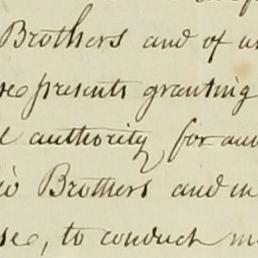 Brothers and of
presents granting
authority for
Brothers and in
to conduct